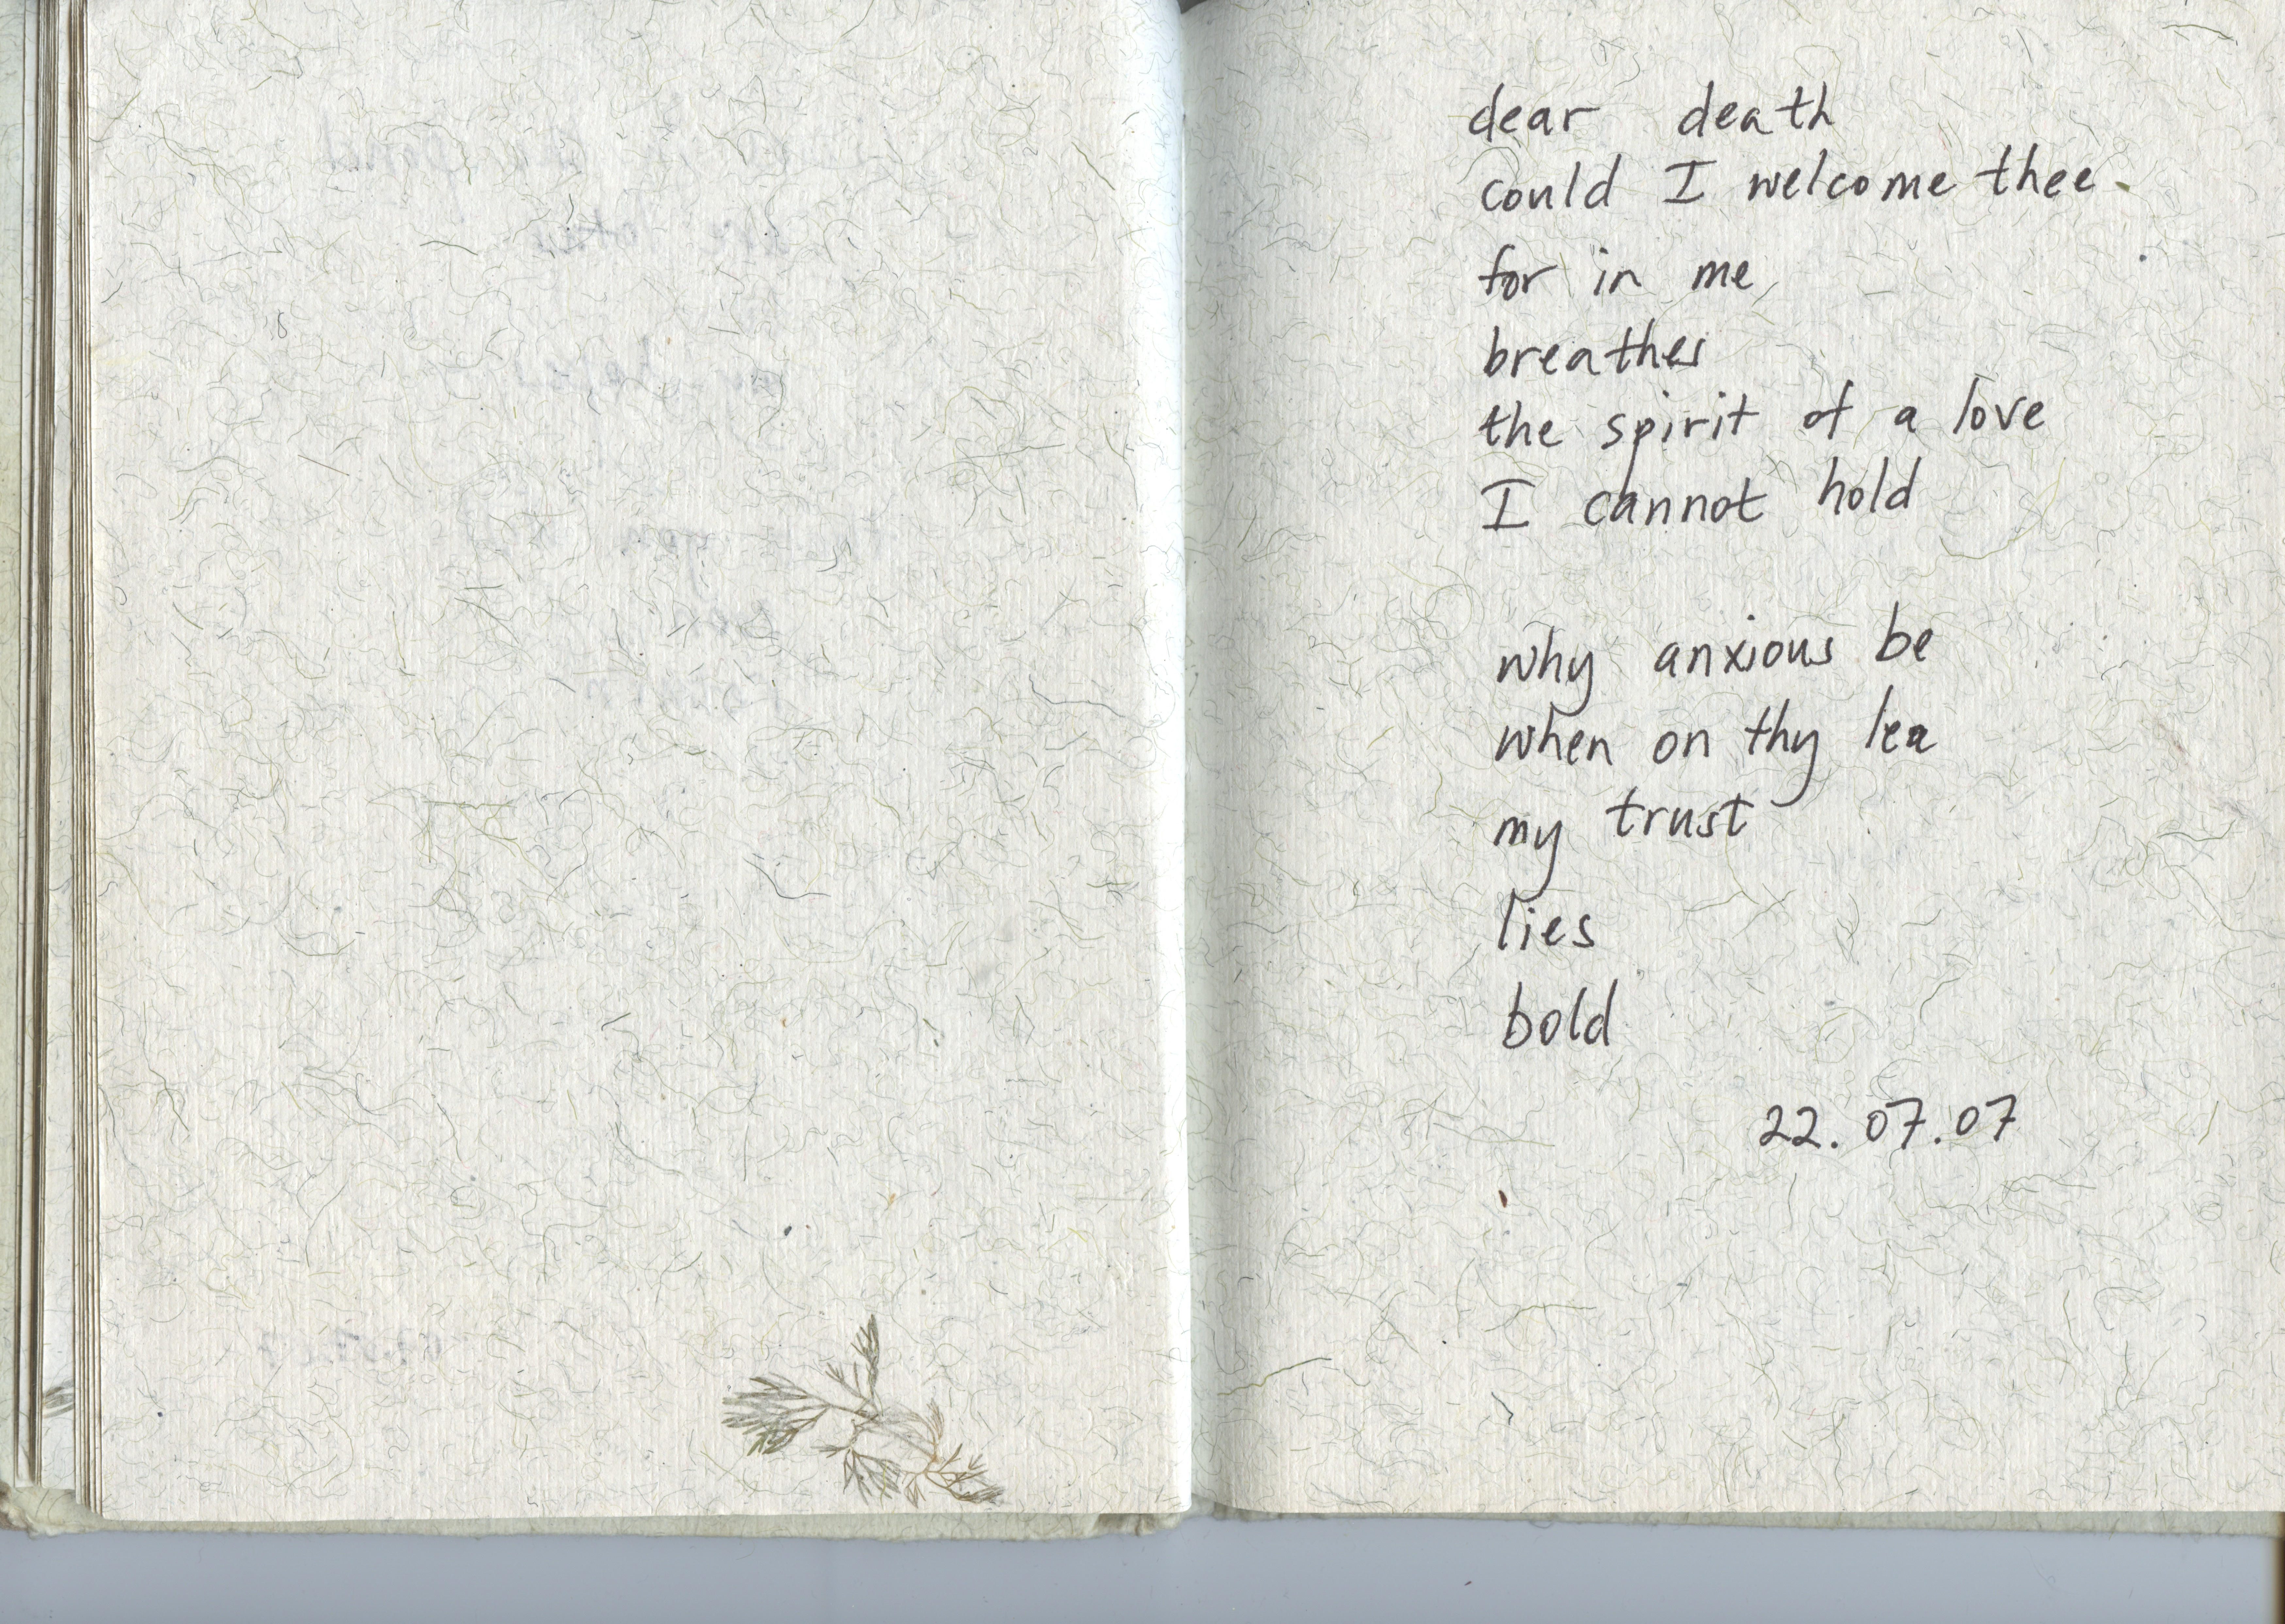 dear death
could I welcome thee
for in me
breathes
the spirit of a love
I cannot hold
why anxious be
when on thy lea
my trust
lies
bold
22.07.07